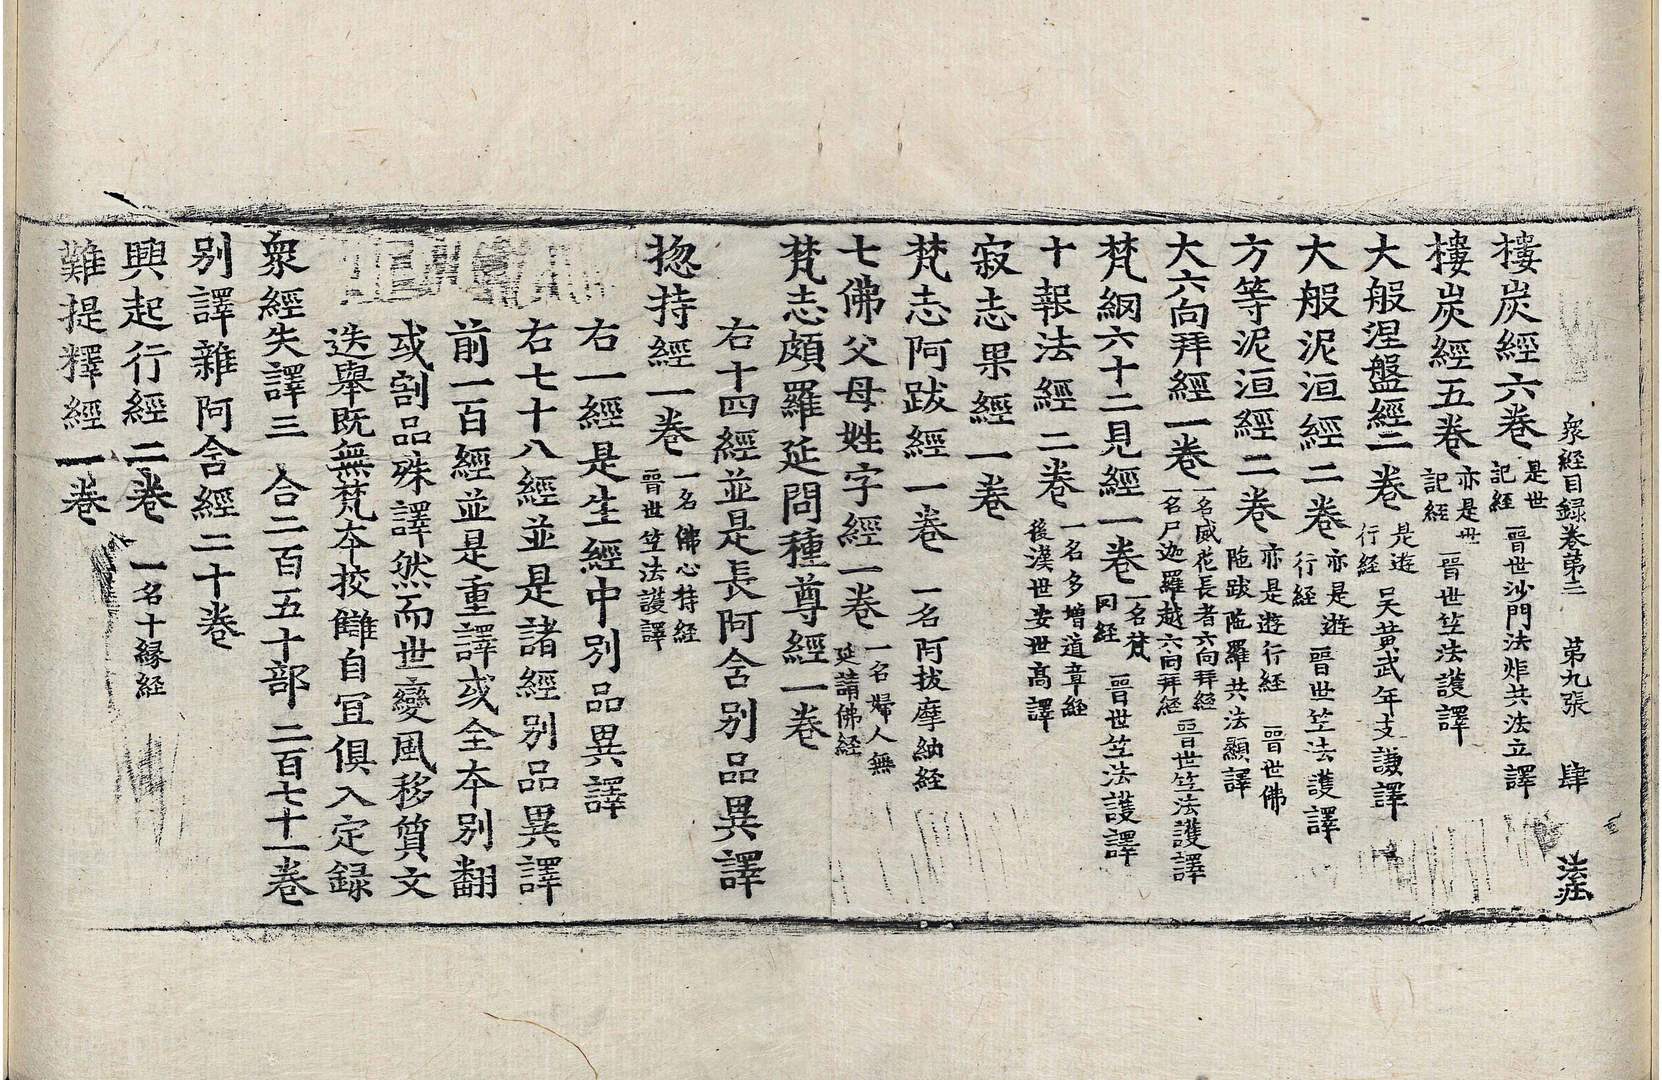 衆経目録卷第三　第九張　肆　法
樓炭經六卷 是世記經 晉世沙門法炬共法立譯
樓炭經五卷 亦是世記経 晉世竺法護譯
大般涅盤經二卷 是遊行経 吴黄武年支謙譯
大般泥洹經二卷 亦是遊行経 晉世竺法護譯
方等泥洹經二卷 亦是遊行経 晉世佛陁跋陁羅共法顯譯
大六向拜經一卷 一名威花長者六向拜経一名尸迦羅越六向拜経 晉世竺法護譯
梵網六十二見經一卷 一名梵冈経 晉世竺法護譯
十報法經二卷 一名多增道章経後漢世安世高譯
寂志果經一卷
梵志阿跋經一卷 一名阿拔摩紬経
七佛父母姓字經一卷 一名婦人無延請佛経
梵志頗羅延問種尊經一卷
右十四經並是長阿含別品異譯
惣持經一卷 一名佛心持経晉世竺法護譯
右一經是生經中別品異譯
右七十八經並是諸經別品異譯
前一百經並是重譯或全夲別翻
或割品殊譯然而世變風移質文
迭舉既無梵夲挍讎自冝俱入定録
衆經失譯三 合二百五十部 二百七十一卷
別譯雜阿含經二十卷
興起行經二卷 一名十縁経
難提釋經一卷